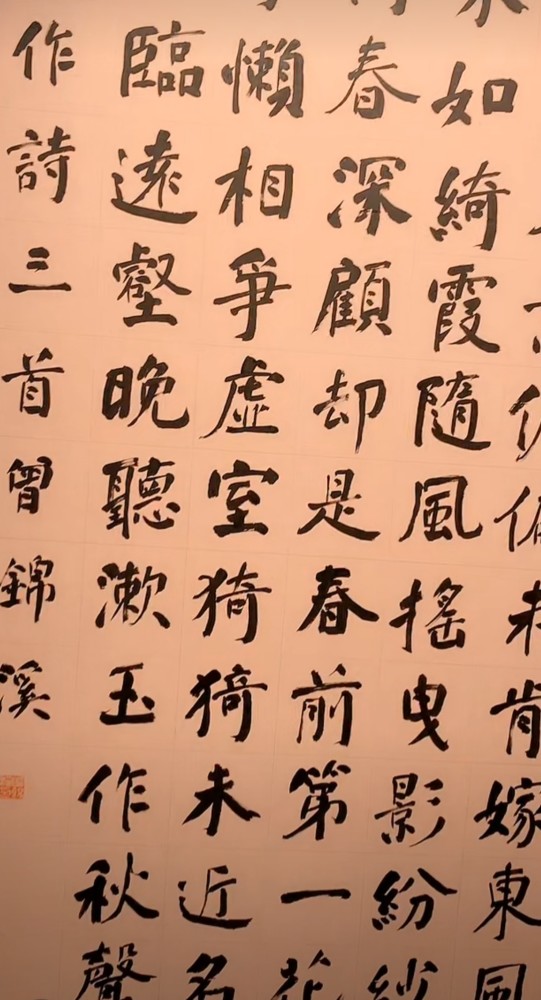 未肯嫁東風
如綺霞隨風搖曳影紛
春深顧却是春前第一花
懶相爭虛室猗猗未近名
臨遠壑晚聽漱玉作秋聲
作詩三首曾錦溪